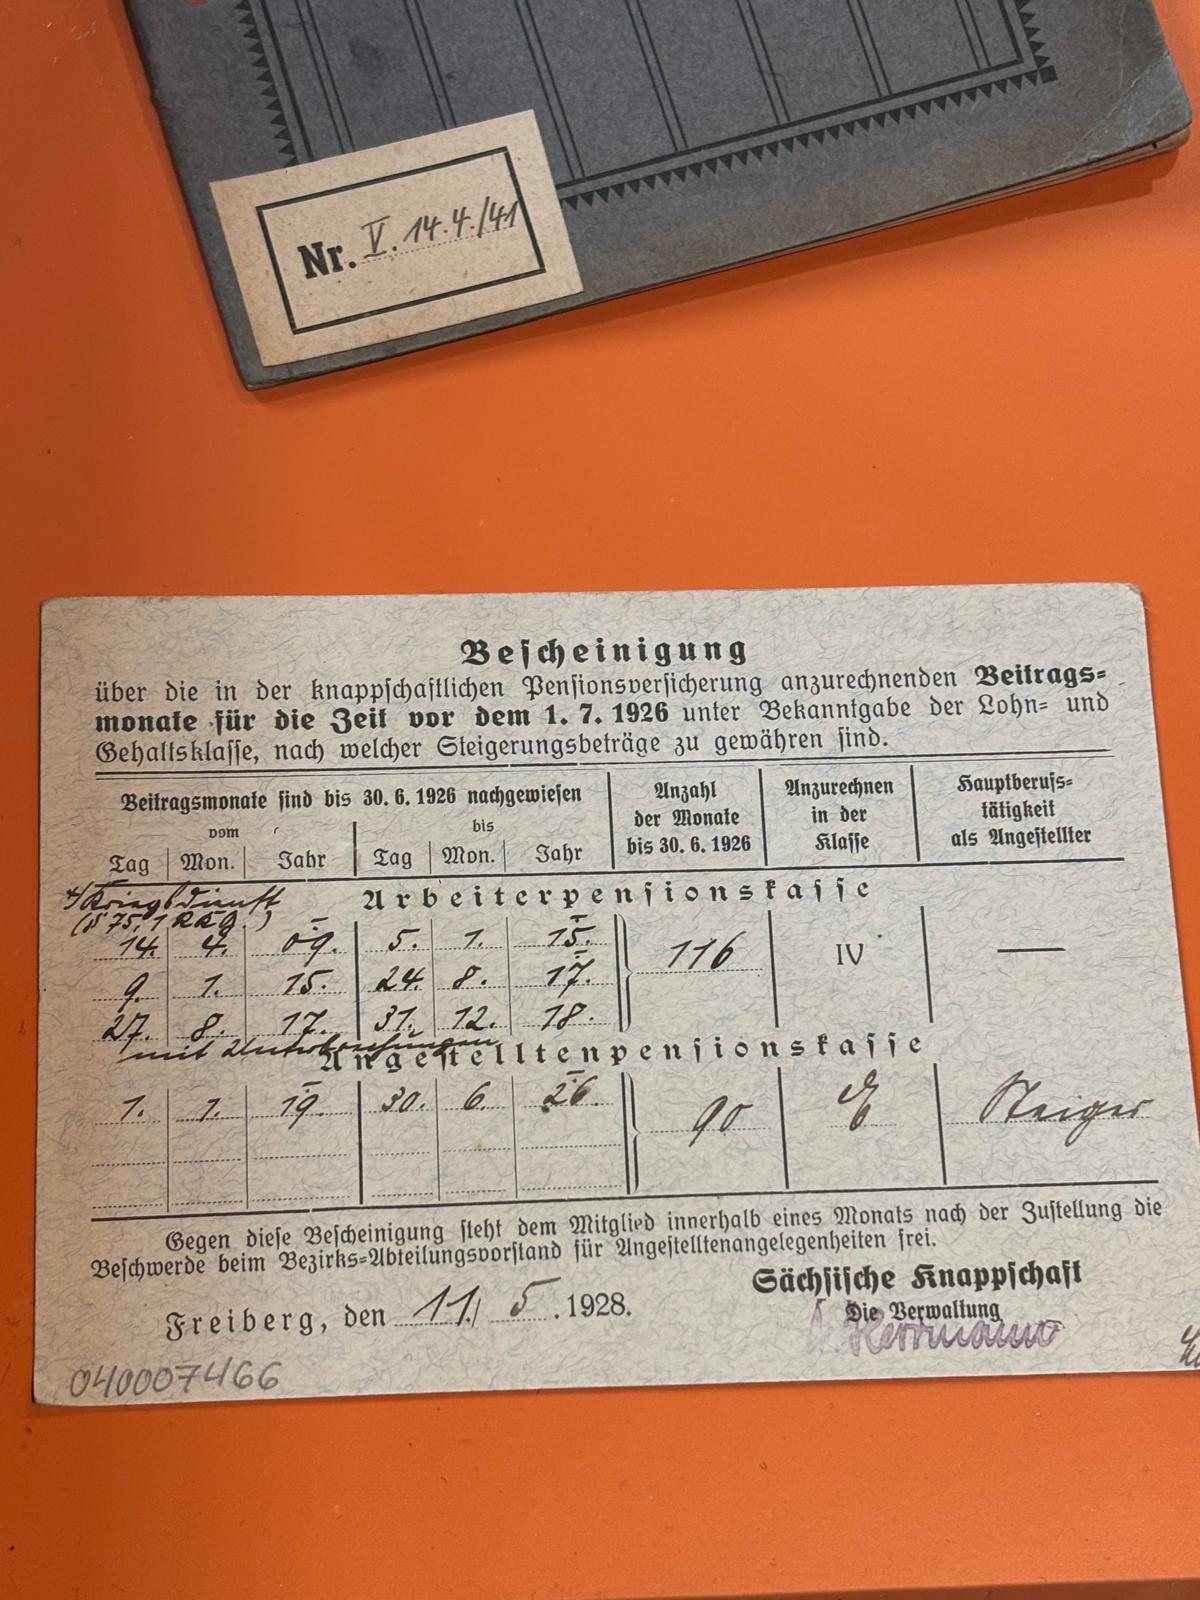 Nr. V. 14.4./41
Bescheinigung
über die in der knappschaftlichen Pensionsversicherung anzurechnenden Beitrags=
monate für die Zeit vor dem 1. 7. 1926 unter Bekanntgabe der Lohn= und
Gehaltsklasse, nach welcher Steigerungsbeträge zu gewähren sind.
Beitragsmonate sind bis 30. 6. 1926 nachgewiesen
vom bis
Tag Mon. Jahr Tag Mon. Jahr
Anzahl
der Monate
bis 30. 6. 1926
Anzurechnen
in der
Klasse
Hauptberufs=
tätigkeit
als Angestellter
Kriegsdienst
(§ 75, 1 RKG.)
Arbeiterpensionskasse
14. 4. 09. 5. 1. 15.
9. 1. 15. 24. 8. 17.
27. 8. 17. 31. 12. 18.
116 IV —
mit Unterbrechungen
Angestelltenpensionskasse
1. 1. 19. 30. 6. 26. 90 E Steiger
Gegen diese Bescheinigung steht dem Mitglied innerhalb eines Monats nach der Zustellung die
Beschwerde beim Bezirks=Abteilungsvorstand für Angestelltenangelegenheiten frei.
Freiberg, den 11./ 5. 1928.
Sächsische Knappschaft
Die Verwaltung
Herrmann
040007466